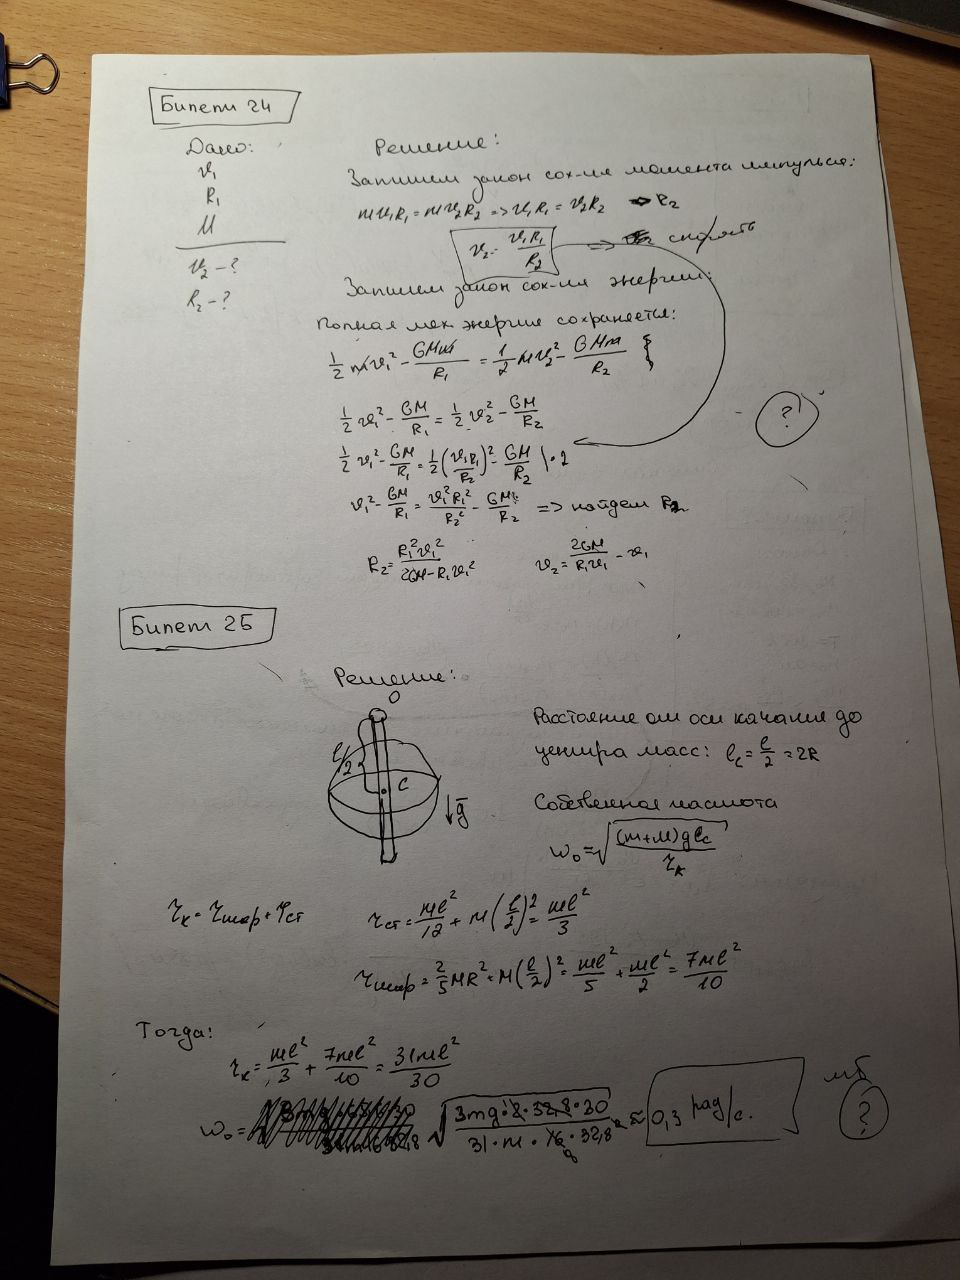 Билет 24
Дано:
v₁
R₁
M
v₂ - ?
R₂ - ?
Решение:
Запишем закон сох-ия момента импульса:
mv₁R₁ = mv₂R₂ => v₁R₁ = v₂R₂ R₂
v₂ = v₁R₁/R₂ =>
Запишем закон сох-ия энергии:
Полная мех. энергия сохраняется:
1/2 mv₁² - GMm/R₁ = 1/2 mv₂² - GMm/R₂
1/2 v₁² - GM/R₁ = 1/2 v₂² - GM/R₂
1/2 v₁² - GM/R₁ = 1/2 (v₁R₁/R₂)² - GM/R₂ | · 2
v₁² - GM/R₁ = v₁²R₁²/R₂² - GM/R₂ => найдем R₂
R₂ = R₁²v₁²/(2GM - R₁v₁²) v₂ = 2GM/(R₁v₁) - v₁
?
Билет 25
Решение:
O
l/2
C
g
Расстояние от оси качания до
центра масс: l_c = l/2 = 2R
Собственная частота
ω₀ = √((m+M)gl_c/I_к)
I_к = I_шар + I_ст I_ст = ml²/12 + m(l/2)² = ml²/3
I_шар = 2/5 MR² + M(l/2)² = ml²/5 + ml²/2 = 7ml²/10
Тогда:
I_к = ml²/3 + 7ml²/10 = 31ml²/30
ω₀ = ≈ 0,3 рад/с.
мб
?